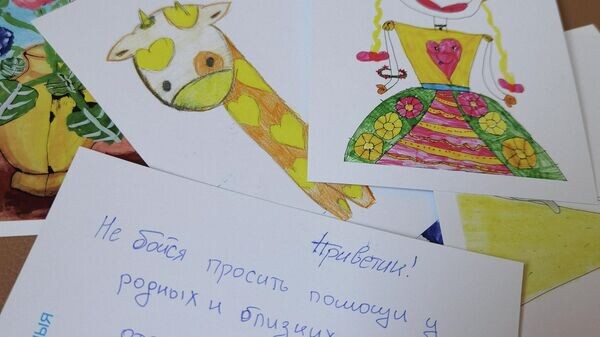 Приветик!
Не бойся просить помощи у
родных и близких
ыя